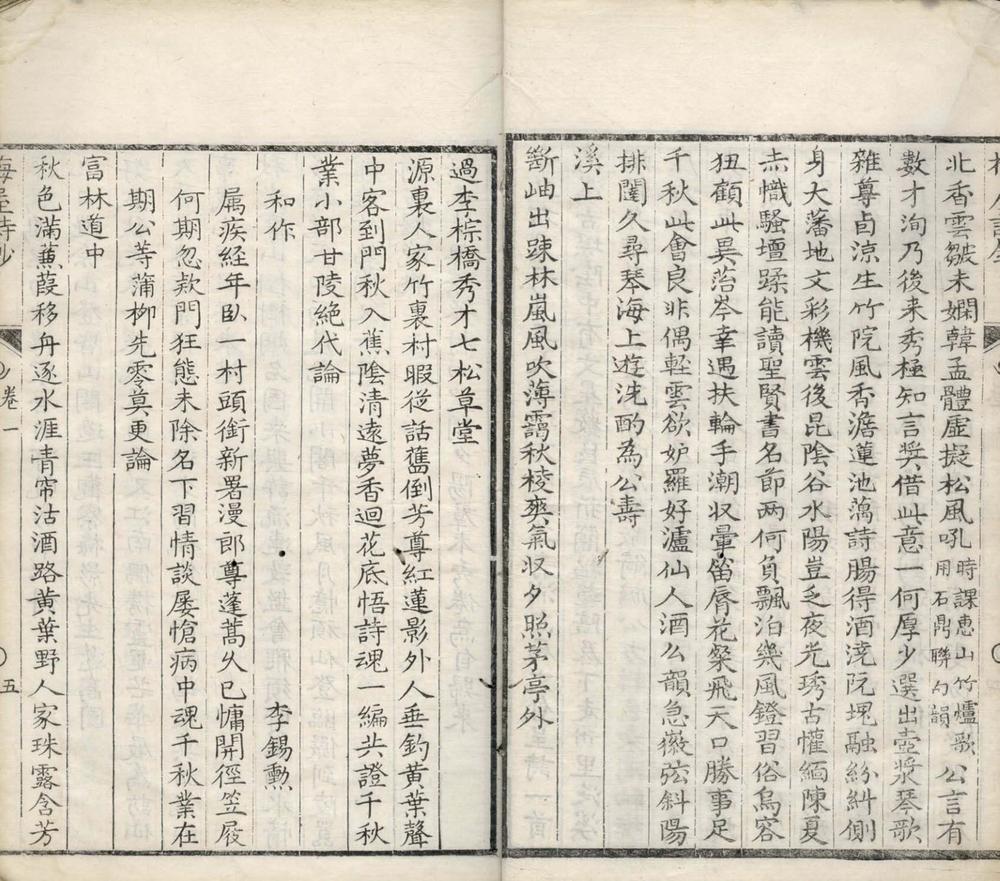 北香雲皺未嫻韓孟體虛擬松風吼時課惠山竹爐歌用石鼎聯句韻公言有
數才洵乃後来秀極知言奬借此意一何厚少選出壺漿琴歌
雜尊卣涼生竹院風香澹蓮池藕詩腸得酒澆阮塊融紛糾側
身大藩地文彩機雲後昆陰谷水陽豈乏夜光琇古懽緬陳夏
赤幟騷壇蹂能讀聖賢書名節兩何負飄泊幾風鐙習俗烏容
狃顧此異苔岑幸遇扶輪手潮収暈笛脣花粲飛天口勝事足
千秋此會良非偶輕雲欲妒羅好瀘仙人酒么韻急徽弦斜陽
排闥久尋琴海上遊洗酌為公壽
溪上
斷岫出疎林嵐風吹薄靄秋棱爽氣収夕照茅亭外
過李棕橋秀才七松草堂
源裏人家竹裏村暇從話舊倒芳尊紅蓮影外人垂釣黄葉聲
中客到門秋入蕉陰清遠夢香迴花底悟詩魂一編共證千秋
業小部甘陵絶代論
和作 李錫勲
屬疾経年臥一村頭銜新署漫郎尊蓬蒿久已慵開徑笠屐
何期忽款門狂態未除名下習情談屢愴病中魂千秋業在
期公等蒲栁先零莫更論
富林道中
秋色滿蒹葭移舟逐水涯青帘沽酒路黄葉野人家珠露含芳
海屋詩鈔
卷一
五